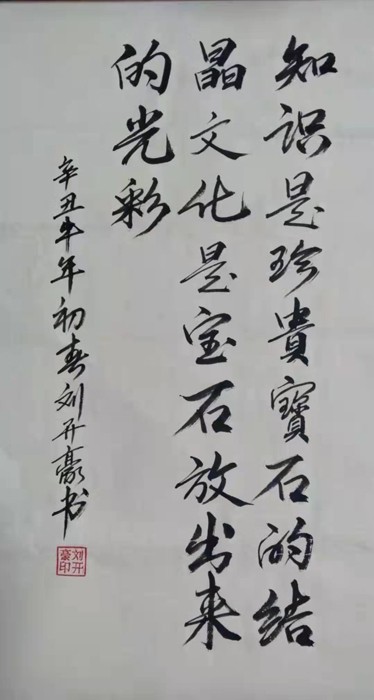 知识是珍貴寳石的结
晶文化是宝石放出来
的光彩
辛丑牛年初春刘开豪书
刘开豪印